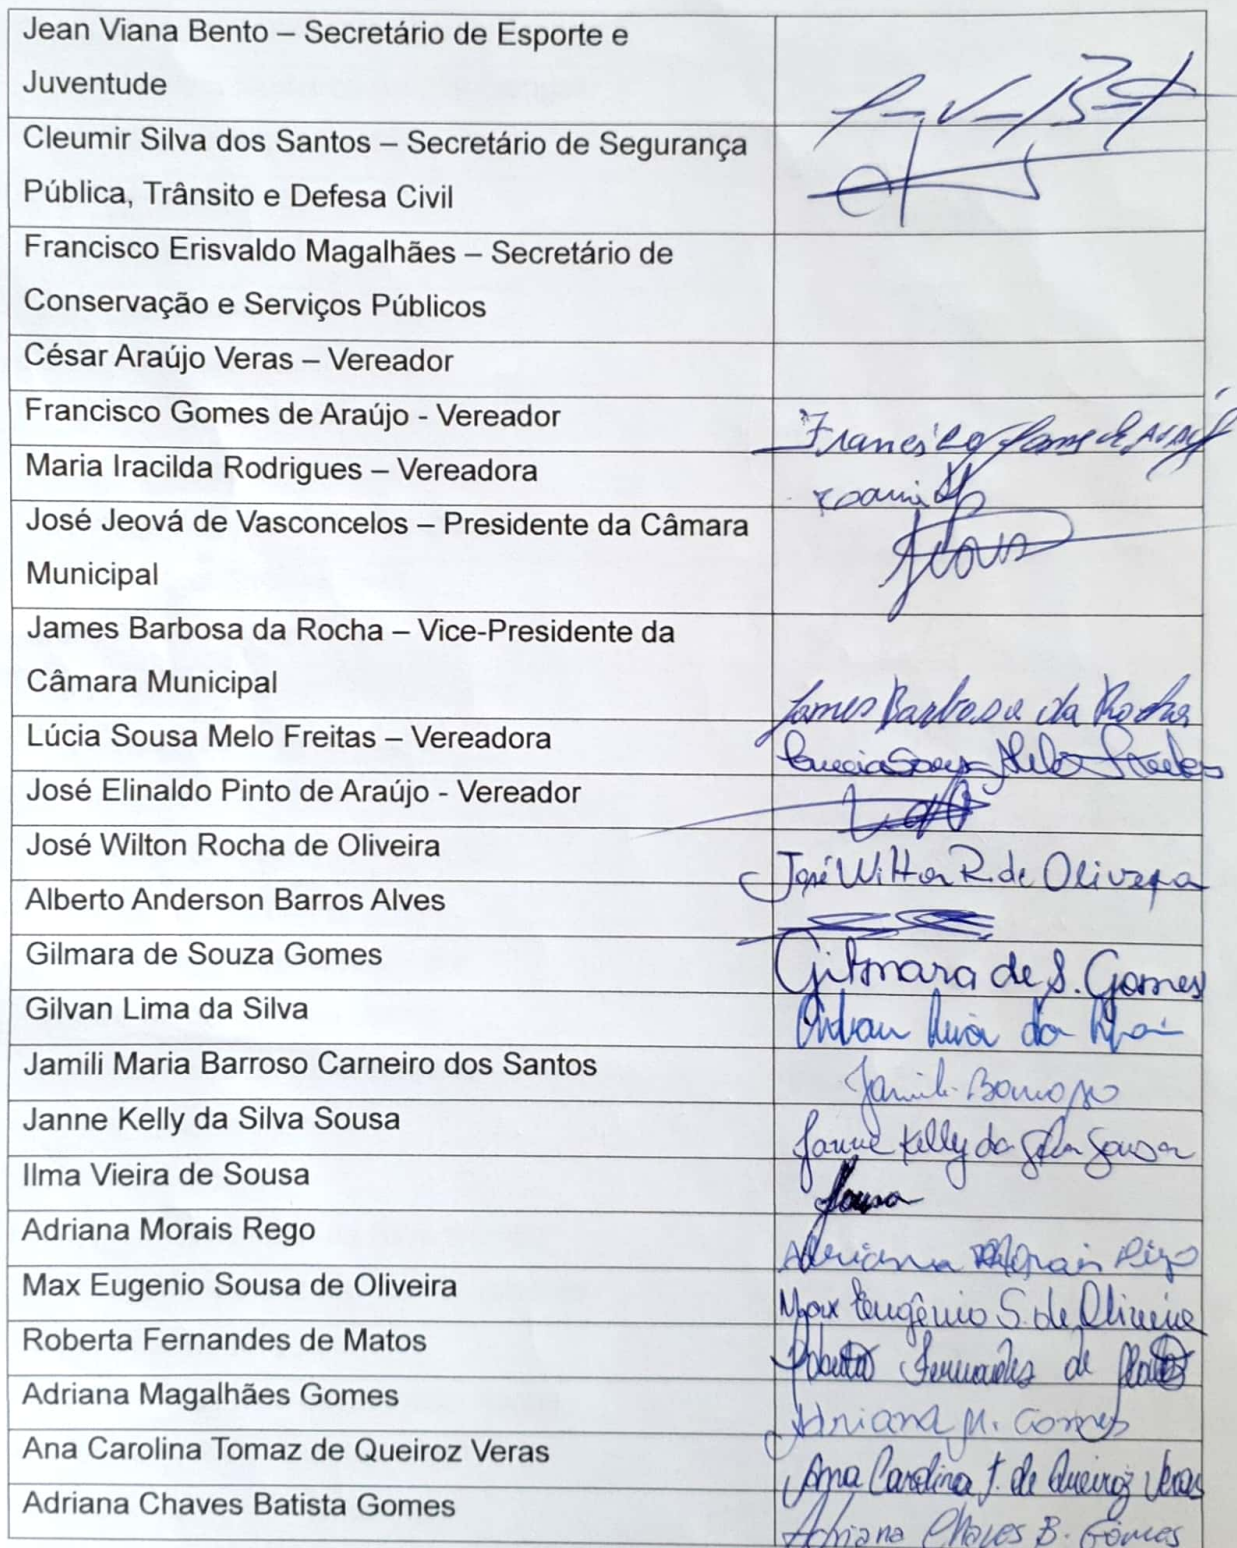 Jean Viana Bento – Secretário de Esporte e
Juventude
Cleumir Silva dos Santos – Secretário de Segurança
Pública, Trânsito e Defesa Civil
Francisco Erisvaldo Magalhães – Secretário de
Conservação e Serviços Públicos
César Araújo Veras – Vereador
Francisco Gomes de Araújo - Vereador
Francisco Gomes de Araújo
Maria Iracilda Rodrigues – Vereadora
José Jeová de Vasconcelos – Presidente da Câmara
Municipal
James Barbosa da Rocha – Vice-Presidente da
Câmara Municipal
James Barbosa da Rocha
Lúcia Sousa Melo Freitas – Vereadora
Lucia Sousa Melo Freitas
José Elinaldo Pinto de Araújo - Vereador
José Wilton Rocha de Oliveira
José Wilton R. de Oliveira
Alberto Anderson Barros Alves
Gilmara de Souza Gomes
Gilmara de S. Gomes
Gilvan Lima da Silva
Gilvan Lima da Silva
Jamili Maria Barroso Carneiro dos Santos
Jamili Barroso
Janne Kelly da Silva Sousa
Janne Kelly da Silva Sousa
Ilma Vieira de Sousa
Sousa
Adriana Morais Rego
Adriana Morais Rego
Max Eugenio Sousa de Oliveira
Max Eugênio S. de Oliveira
Roberta Fernandes de Matos
Roberta Fernandes de Matos
Adriana Magalhães Gomes
Adriana M. Gomes
Ana Carolina Tomaz de Queiroz Veras
Ana Carolina T. de Queiroz Veras
Adriana Chaves Batista Gomes
Adriana Chaves B. Gomes